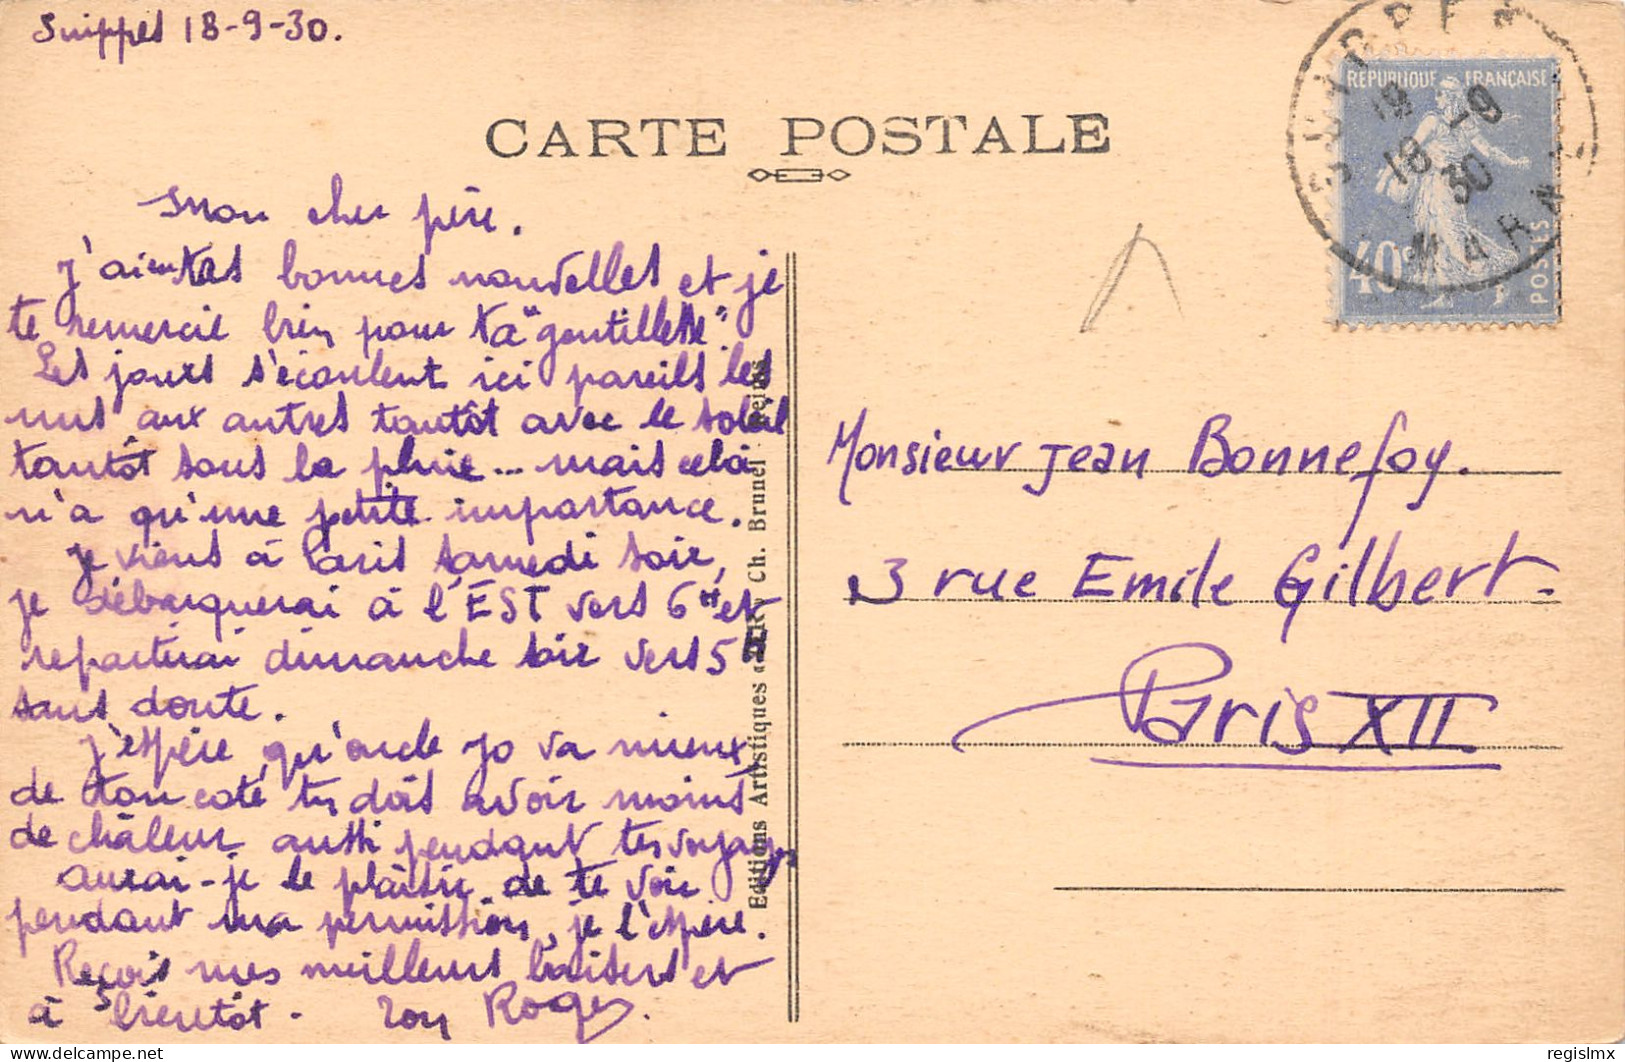 Suippes 18-9-30.
CARTE POSTALE
Mon cher père.
J'ai eu tes bonnes nouvelles et je
te remercie bien pour ta "gentillesse".
Les jours s'écoulent ici pareils les
uns aux autres tantôt avec le soleil
tantôt sous la pluie... mais cela
n'a qu'une petite importance.
Je viens à Paris samedi soir,
je débarquerai à l'EST vers 6H et
repartirai dimanche soir vers 5H
sans doute.
J'espère qu'oncle Jo va mieux,
de ton coté tu dois avoir moins
de châleur aussi pendant tes voyages
aurai-je le plaisir de te voir
pendant ma permission, je l'espère.
Reçois mes meilleurs baisers et
à bientôt. Ton Roger.
Editions Artistiques Ch. Brunel - Reims
SUIPPES
MARNE
18 -9
30
REPUBLIQUE FRANÇAISE
40c
POSTES
Monsieur Jean Bonnefoy.
3 rue Emile Gilbert.
Paris XII
regislmx